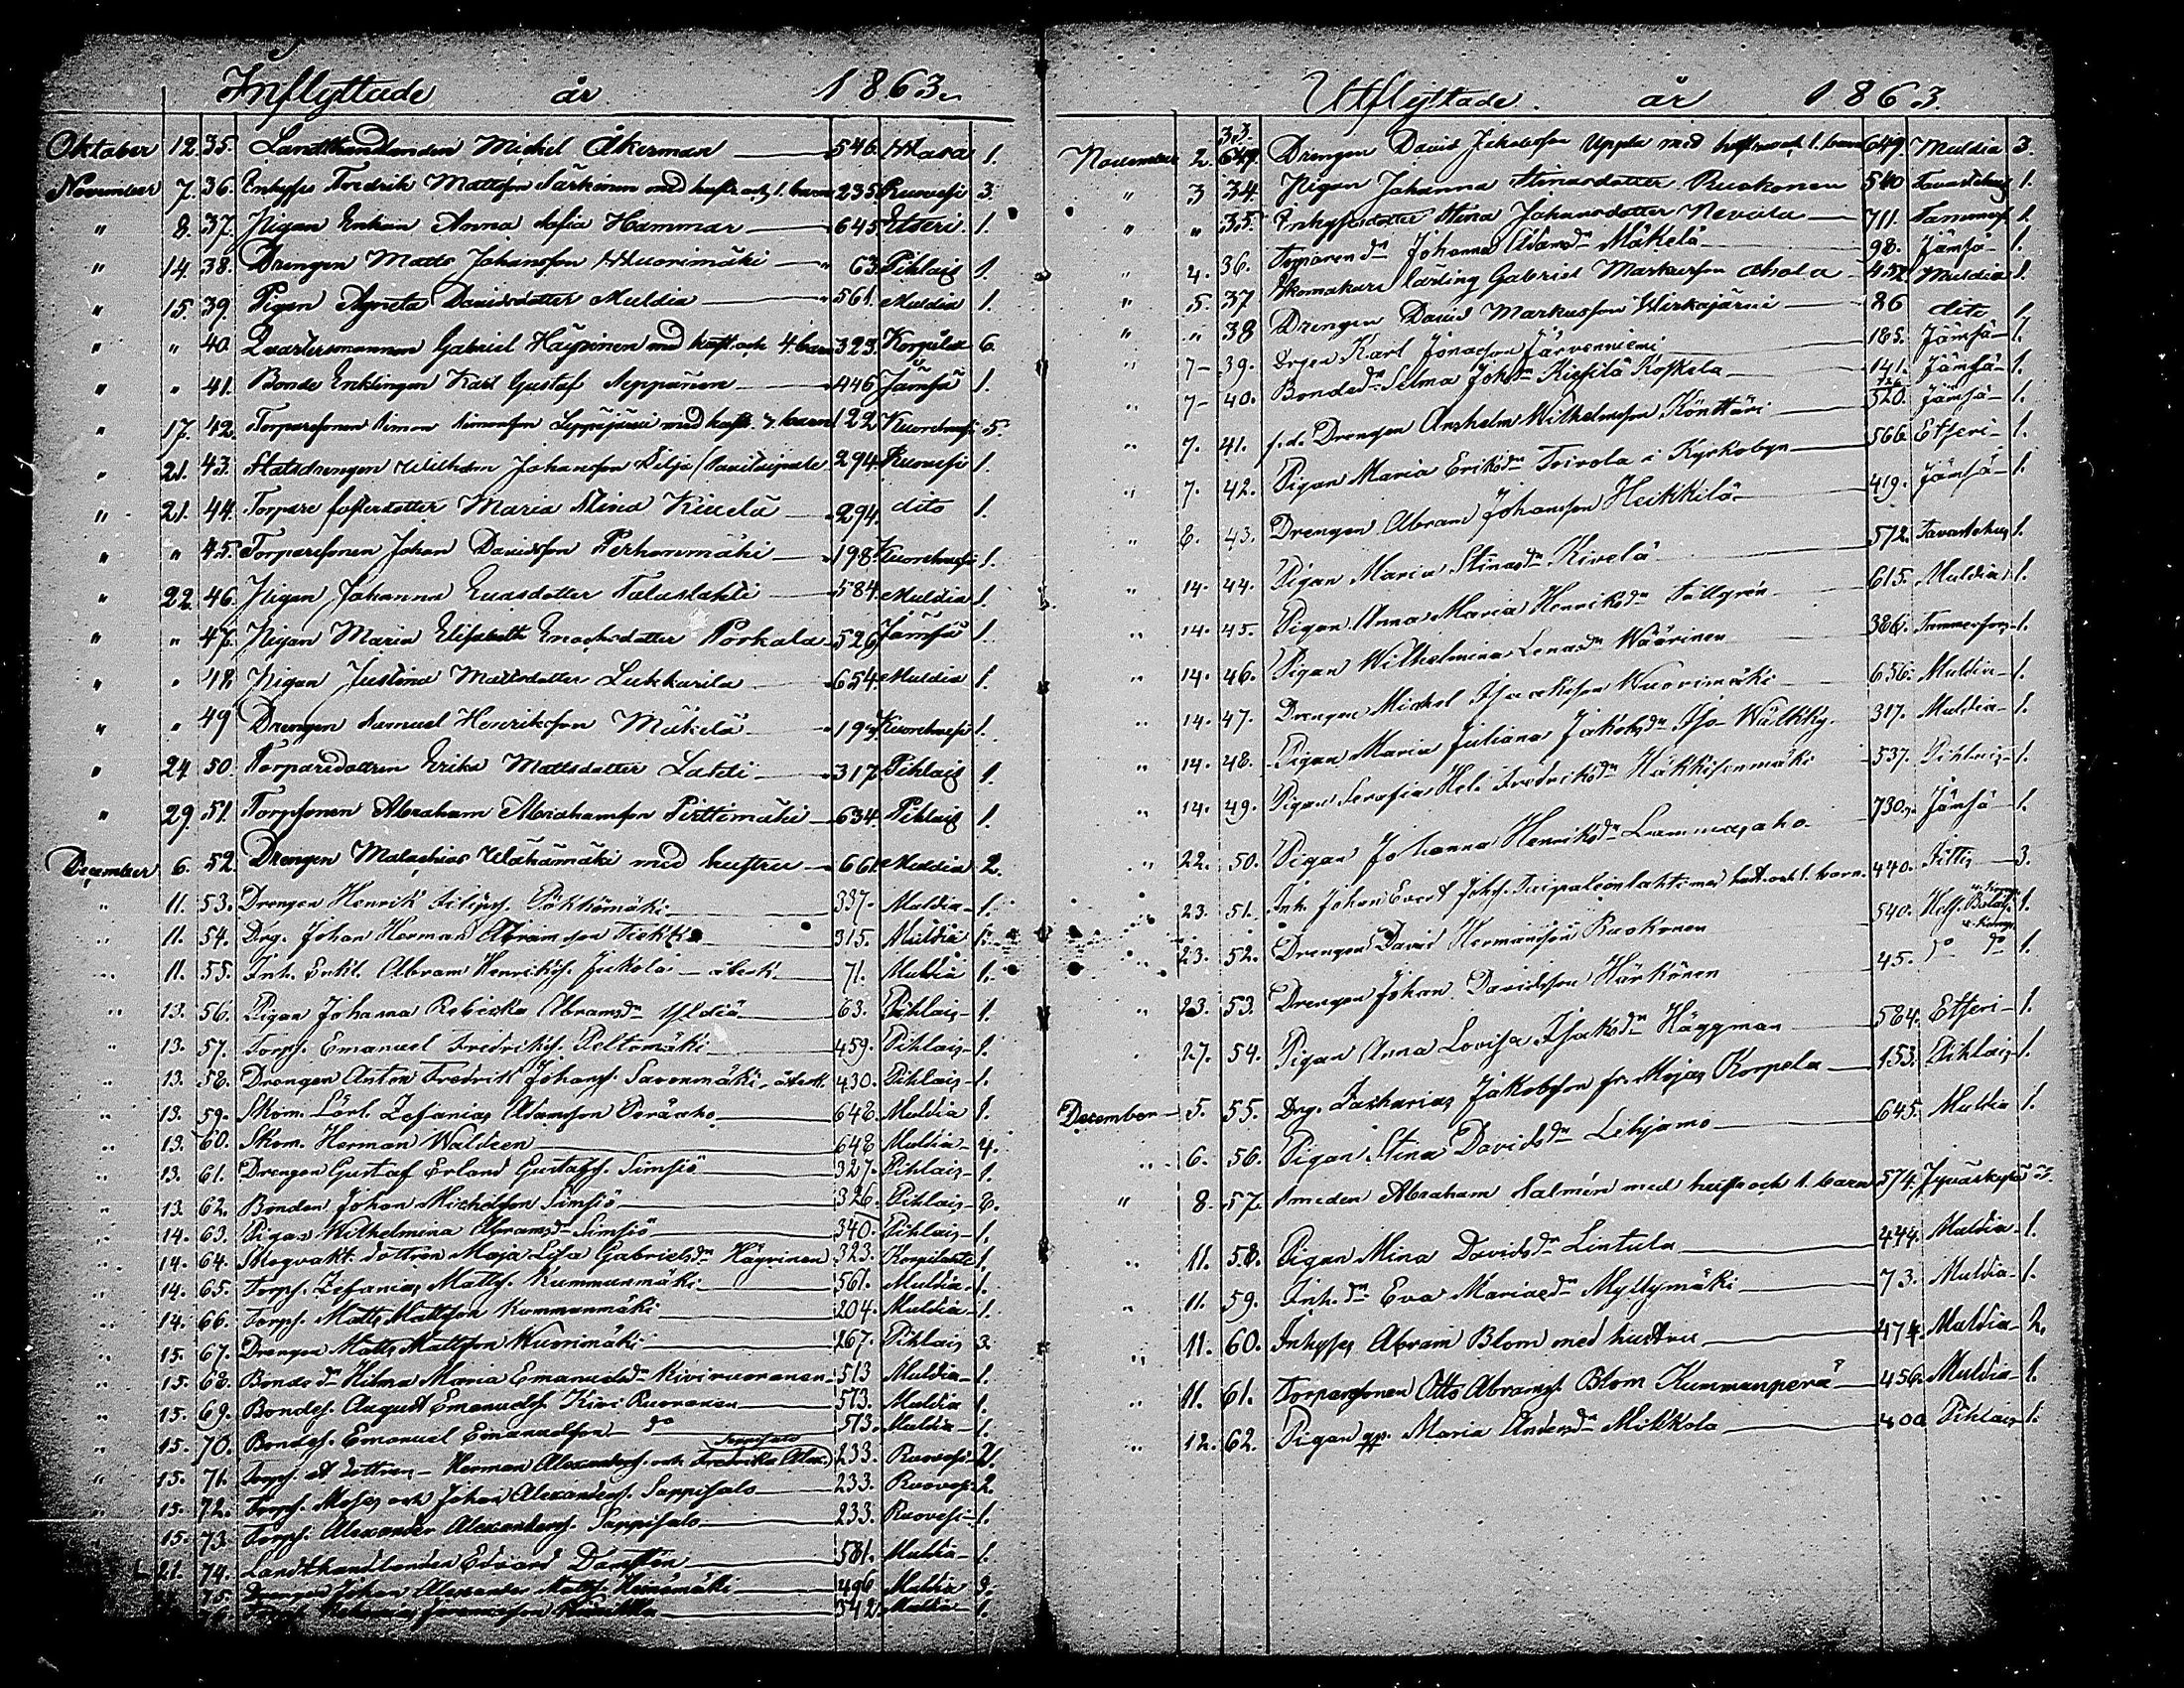 Inflyttade år 1863.
Oktober 12. 35. Landthandlanden Michel Åkerman 546. Wasa 1.
November 7. 36. Inhyses Fredrik Mattsson Särkinen med hustr. och 1. barn 235 Ruovesi 3.
" 8. 37. Pigan Enkan Anna Sofia Hammar 645 Etseri 1.
" 14. 38. Drengen Matts Johansson Wuorimäki 63. Pihlais 1.
" 15. 39. Pigan Agneta Davidsdotter Muldia 561. Muldia 1.
" " 40. Qvartersmannen Gabriel Häyrinen med hust. och 4. barn 323. Korpilax 6.
" " 41. Bonde Enklingen Karl Gustaf Seppänen 446 Jämsä 1.
" 17. 42. Torparesonen Simon Simonsson Leppäjärvi med hustr. 3. barn 122 Kuorehvesi 5.
" 21. 43. Statsdrengen Wilhelm Johansson Silja 294 Ruovesi 1.
" 21. 44. Torpare fosterdotter Maria Stina Kivelä 294. dito 1.
" " 45. Torparesonen Johan Davidsson Perhonmäki 198. Kuorehvesi 1.
" 22. 46. Pigan Johanna Evasdotter Taluslahti 584. Muldia 1.
" " 47. Pigan Maria Elisabeth Enochsdotter Porkala 526 Jämsä 1.
" " 48 Pigan Justina Mattsdotter Lukkarila 654. Muldia 1.
" " 49 Drengen Samuel Henriksson Mäkelä 194 Kuorehvesi 1.
" 24 50. Torparedottren Erika Mattsdotter Lahti 317 Pihlais 1.
" 29. 51. Torpsonen Abraham Abrahamsson Pirttimäki 634. Pihlais 1.
December 6. 52. Drengen Malachias Wähämäki med hustru 661. Muldia 2.
" 11. 53. Drengen Henrik Filipss. Pökkömäki 337. Muldia 1.
" 11. 54. Drg. Johan Herman Abramsson Tiekko 315. Muldia 1.
" 11. 55. Inh. Enkl. Abram Henrikss. Jukola återk. 71. Muldia 1.
" 13. 56. Pigan Johanna Rebecka Abramsdr Yldiä 63. Pihlais 1.
" 13. 57. Torps. Emanuel Fredrikss. Peltomäki 459. Pihlais 1.
" 13. 58. Drengen Anton Fredrik Johanss. Savonmäki, återk. 430. Pihlais 1.
" 13. 59. Skom. Lärl. Zefanias Adamsson Peräaho 648. Muldia 1.
" 13. 60. Skom. Herman Waldeen 648 Muldia 4.
" 13. 61. Drengen Gustaf Erland Gustafss. Simsiö 327. Pihlais 1.
" 13. 62. Bonden Johan Michelsson Simsiö 326. Pihlais 8.
" 14. 63. Pigan Wilhelmina Abramsdr Simsiö 340. Pihlais 1.
" 14. 64. Skogvakt. dottren Maja Lisa Gabrielsdr Häyrinen 323. Korpilahti 1.
" 14. 65. Torps. Zefanias Mattss. Kummunmäki 561. Muldia 1.
" 14. 66. Torps. Matts Mattsson Kummunmäki 204. Muldia 1.
" 15. 67. Drengen Matts Mattsson Wuorimäki 267. Pihlais 3.
" 15. 68. Bonde dr Hilma Maria Emanuelsdr Kiviruoranen 513 Muldia 1.
" 15. 69. Bondes. August Emanuelss. Kivi Ruoranen 573. Muldia 1.
" 15. 70. Bondes. Emanuel Emanuelsson do 573. Muldia 1.
" 15. 71. Torps. et dottren Herman Alexanderss. och Fredrika Alex. Sappisalo 233. Ruovesi 2.
" 15. 72. Torps. Moses och Johan Alexanderss. Sappisalo 233. Ruovesi 2.
15. 73. Torps. Alexander Alexanderss. Sappisalo 233. Ruovesi 1.
21. 74. Landthandlanden Edvard Damstén 581. Muldia 1.
75. Drengen Johan Alexander Mattss. Heinämäki 496 Muldia 3.
342. Muldia 1.
Utflyttade år 1863
November 2. 33. 649. Drengen David Jakobsson Uppda med hustru och 1. barn 649. Muldia 3.
" 3 34. Pigan Johanna Stinasdotter Ruokonen 540 Tavastehus 1.
" " 35. Inhysesdotter Stina Johansdotter Nevala 711. Tammerf. 1.
" 4. 36. Torparen dr Johanna Adamsdr Mäkelä 98. Jämsä 1.
" 5. 37 Skomakare lärling Gabriel Markusson Ahola 452. Muldia 1.
" " 38 Drengen David Markusson Wirkajärvi 26 dito 1.
" 7 39. Drgen Karl Jonasson Järvenniemi 185. Jämsä 1.
" 7 40. Bondedr Selma Johsdr Kissilä Koskela 141. Jämsä 1.
" 7. 41. f.d. Drengen Anshelm Wilhelmsson Könttäri 520. Jämsä 1.
" 7. 42. Pigan Maria Eriksdr Toivola i Kyrkobyn 566 Etseri 1.
" 8. 43. Drengen Abram Johansson Heikkilä 419. Jämsä 1.
" 14. 44. Pigan Maria Stinasdr Kivelä 572. Tavastehus 1.
" 14. 45. Pigan Anna Maria Henriksdr Tällgrén 615. Muldia 1.
" 14. 46. Pigan Wilhelmina Lenasdr Wäärinen 386. Tammerfors 1.
" 14. 47. Drengen Michel Isacksson Wuorimäki 656. Muldia 1.
" 14. 48. Pigan Maria Juliana Jakobsdr Iso-Wälkky 317. Muldia 1.
" 14. 49. Pigan Serafia Hel. Fredriksdr Häkkisenmäki 537. Pihlais 1.
" 22. 50. Pigan Johanna Henriksdr Lammasaho 730. Jämsä 1.
" 23. 51. Inh. Johan Evert Johss. med hust. och 1. barn. 440. Jittis 3.
" 23. 52. Drengen David Hermansson Ruokonen 540. Helf. Batalj. 1.
" 23. 53. Drengen Johan Davidsson Härkönen 45. do do 1.
27. 54. Pigan Anna Lovisa Isaksdr Häggman 584. Etseri 1.
December 5. 55. Drg. Zacharias Jakobsson fr. Mojas Korpela 153. Pihlais 1.
" 6. 56. Pigan Stina Davidsdr Lehjamo 645. Muldia 1.
" 8. 57. Smeden Abraham Salmén med hustr och 1. barn 574. Jyväskylä 3.
" 11. 58. Pigan Mina Davidsdr Lintula 444. Muldia 1.
" 11. 59. Inh. dr Eva Mariasdr Myllymäki 73. Muldia 1.
" 11. 60. Inhyses Abram Blom med hustru 474. Muldia 2.
" 11. 61. Torparesonen Otto Abramss. Blom Kummunperä 456. Muldia 1.
" 12. 62. Pigan Maria Andersdr Mikkola 400 Pihlais 1.